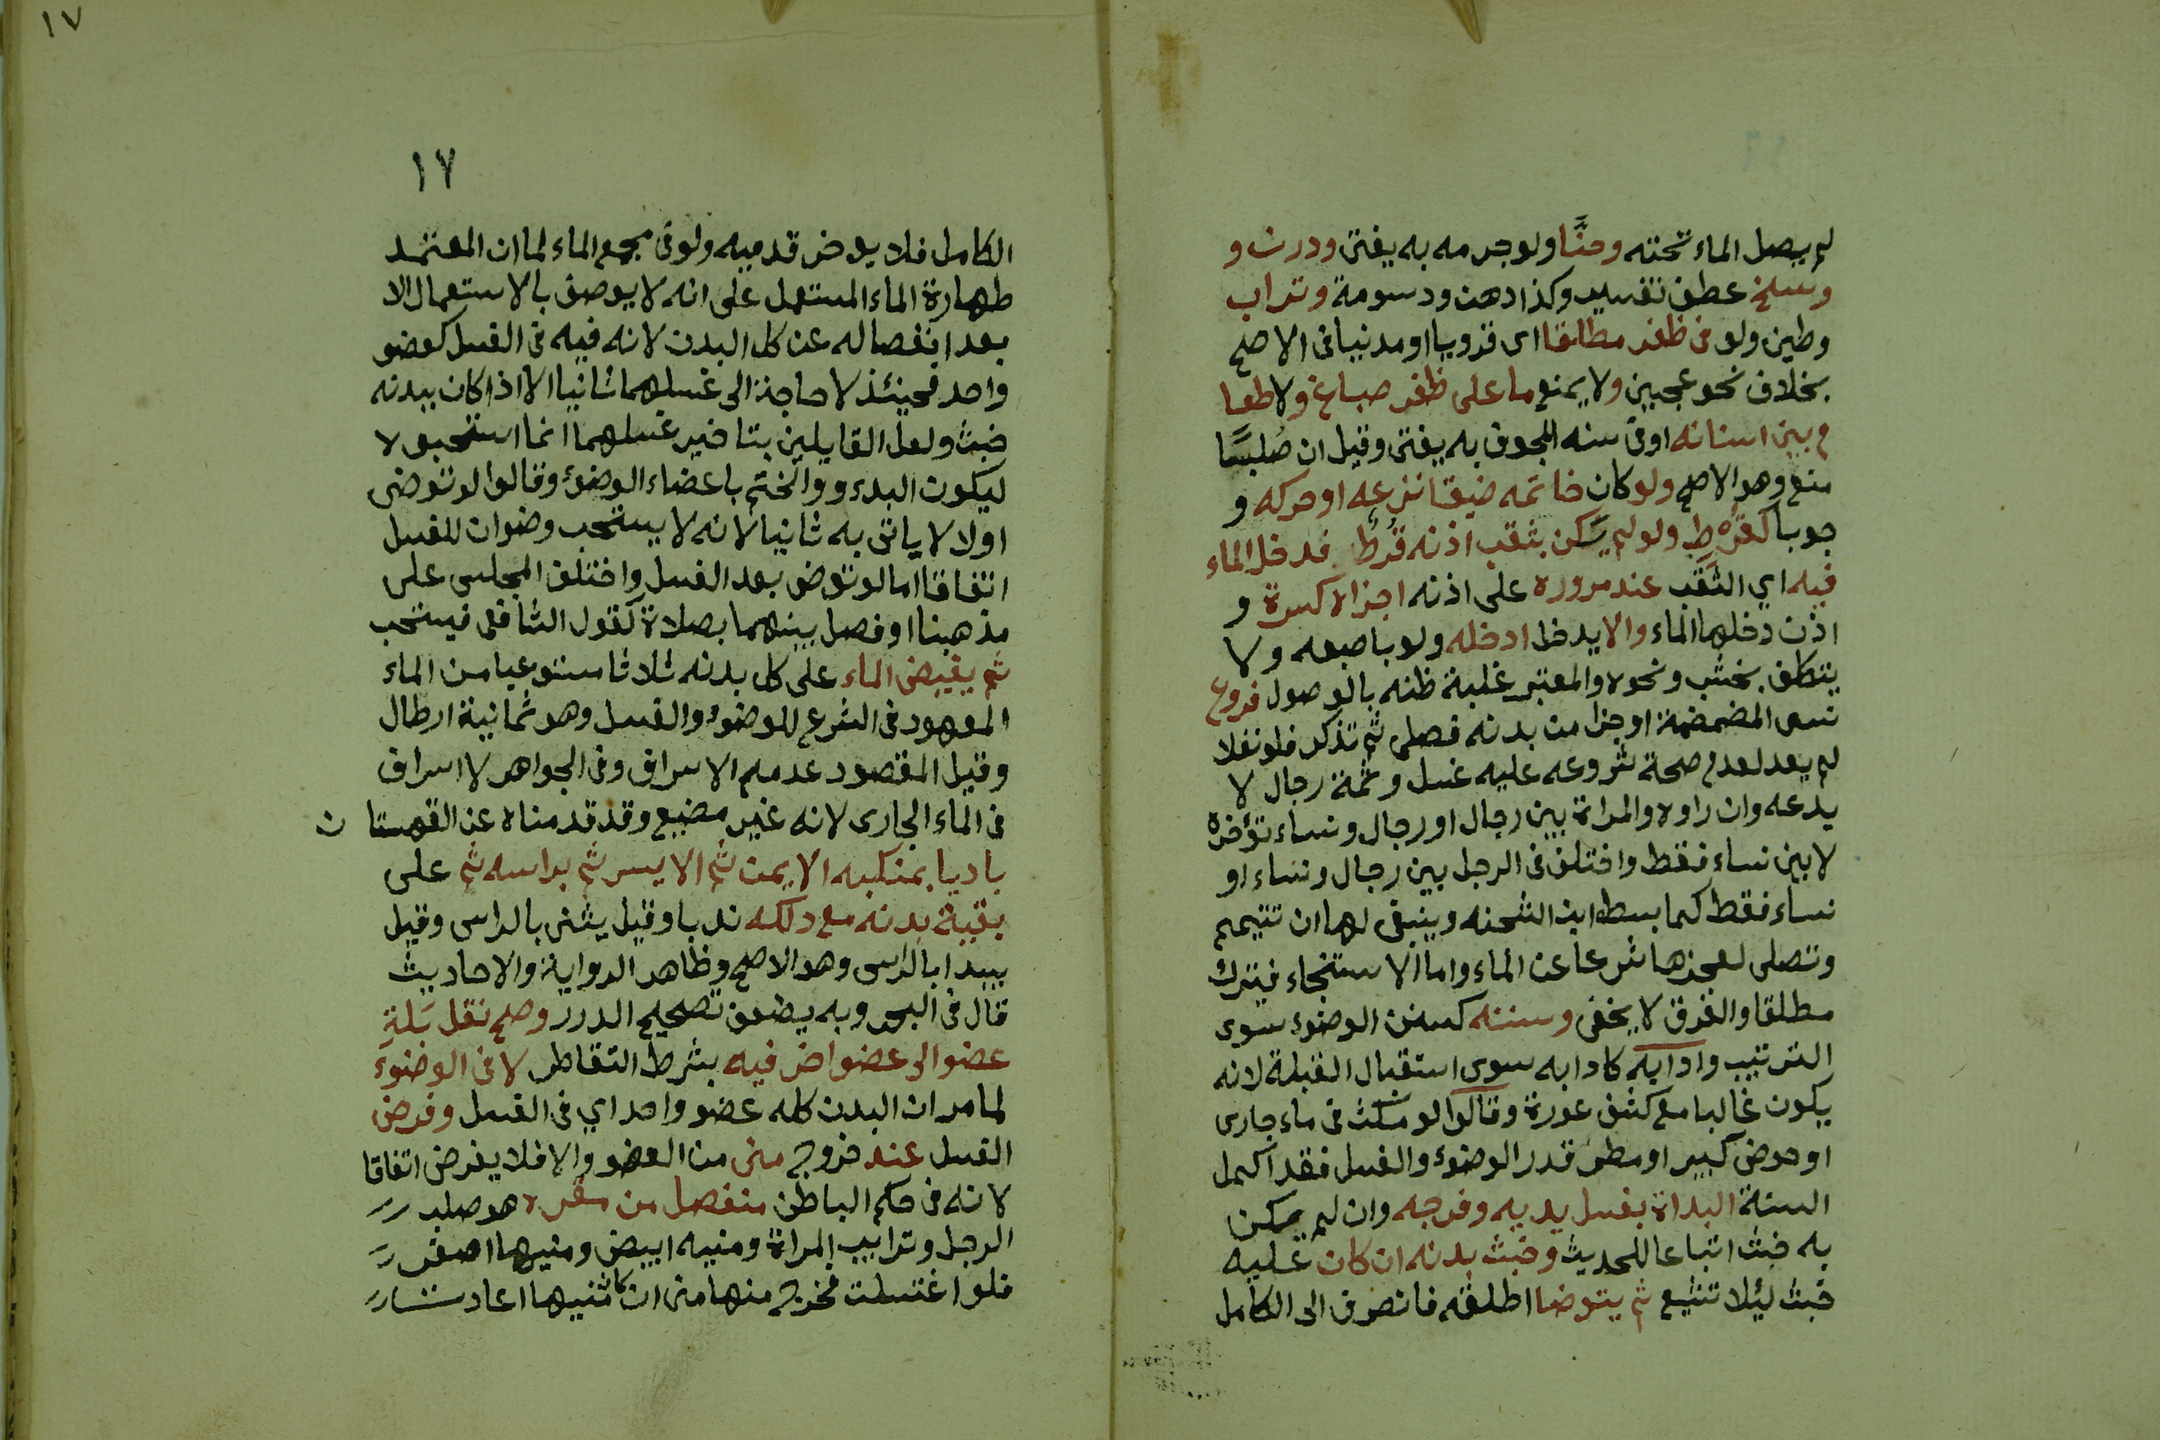 لم يصل الماء تحته وحنا ولو جرمه به يفتى ودرن و
وسخ عطف تفسير وكذا دهن ودسومة وتراب
وطين ولو في ظفر مطلقا اى قرويا او مدنيا فى الاصح
بخلاف نحو عجين ولا يمنع ما على ظفر صباغ ولا طعا
م بين اسنانه او فى سنه المجوف به يفتى وقيل ان صلبا
منع وهو الاصح ولو كان خاتمه ضيقا نزعه او حركه و
جوبا كقرط ولو لم يكن بثقب اذنه قرط فدخل الماء
فيه اي الثقب عند مروره على اذنه اجزا كسرة و
اذن دخلها الماء والا يدخل ادخله ولو باصبعه ولا
يتكلف بخشب ونحوه والمعتبر غلبة ظنه بالوصول فروع
نسى المضمضة او جزا من بدنه فصلى ثم تذكر فلو نفلا
لم يعد لعدم صحة شروعه عليه غسل وثمة رجال لا
يدعه وان راوه والمراة بين رجال او رجال ونساء تؤخره
لا بين نساء فقط واختلف فى الرجل بين رجال ونساء او
نساء فقط كما بسطه ابن الشحنه وينبغى لها ان تتيمم
وتصلى لعجزها شرعا عن الماء واما الاستنجاء فيترك
مطلقا والفرق لا يخفى وسننه كسنن الوضوء سوى
الترتيب وادابه كادابه سوى استقبال القبلة لانه
يكون غالبا مع كشف عورة وقالوا لو مكث فى ماء جارى
او حوض كبير او مطر قدر الوضوء والغسل فقد اكمل
السنة البداة بغسل يديه وفرجه وان لم يكن
به خبث اتباعا للحديث وخبث بدنه ان كان عليه
خبث ليئلا تشيع ثم يتوضا اطلقه فانصرف الى الكامل
١٧
١٧
الكامل فلا يوخر قدميه ولو فى مجمع الماء لما ان المعتمد
طهارة الماء المستعمل على انه لا يوصف بالاستعمال الا
بعد انفصاله عن كل البدن لانه فيه فى الغسل كعضو
واحد فحينئذ لا حاجة الى غسلهما ثانيا الا اذا كان ببدنه
خبث ولعل القايلين بتاخير غسلهما انما استحبوه لا
ليكون البدء ووالختم باعضاء الوضوء وقالوا لو توضى
اولا لا ياتى به ثانيا لانه لا يستحب وضوان للغسل
اتفاقا اما لو توضى بعد الغسل واختلف المجلس على
مذهبنا او فصل بينهما بصلاة كقول الشافعى فيستحب
ثم يفيض الماء على كل بدنه ثلاثا مستوعبا من الماء
المعهود فى الشرع للوضوء والغسل وهو ثمانية ارطال
وقيل المقصود عدم الاسراف وفى الجواهر لا اسراف
فى الماء الجارى لانه غير مضيع وقد قدمناه عن القهستا ن
باديا بمنكبه الايمن ثم الايسر ثم براسه ثم على
بقية بدنه مع دلكه ندبا وقيل يثنى بالراس وقيل
يبدا بالراس وهو الاصح وظاهر الرواية والاحاديث
قال فى البحر وبه يضعف تصحيح الدرر وصح نقل بلة
عضو الى عضو اخر فيه بشرط التقاطر لا فى الوضوء
لما مر ان البدن كله عضو واحد اي فى الغسل وفرض
الغسل عند خروج منى من العضو والا فلا يفرض اتفاقا
لانه فى حكم الباطن منفصل من مقره هو صلب
الرجل وترايب المراة ومنيه ابيض ومنيها اصفر
فلو اغتسلت فخرج منها منى ان كا منيها اعادت